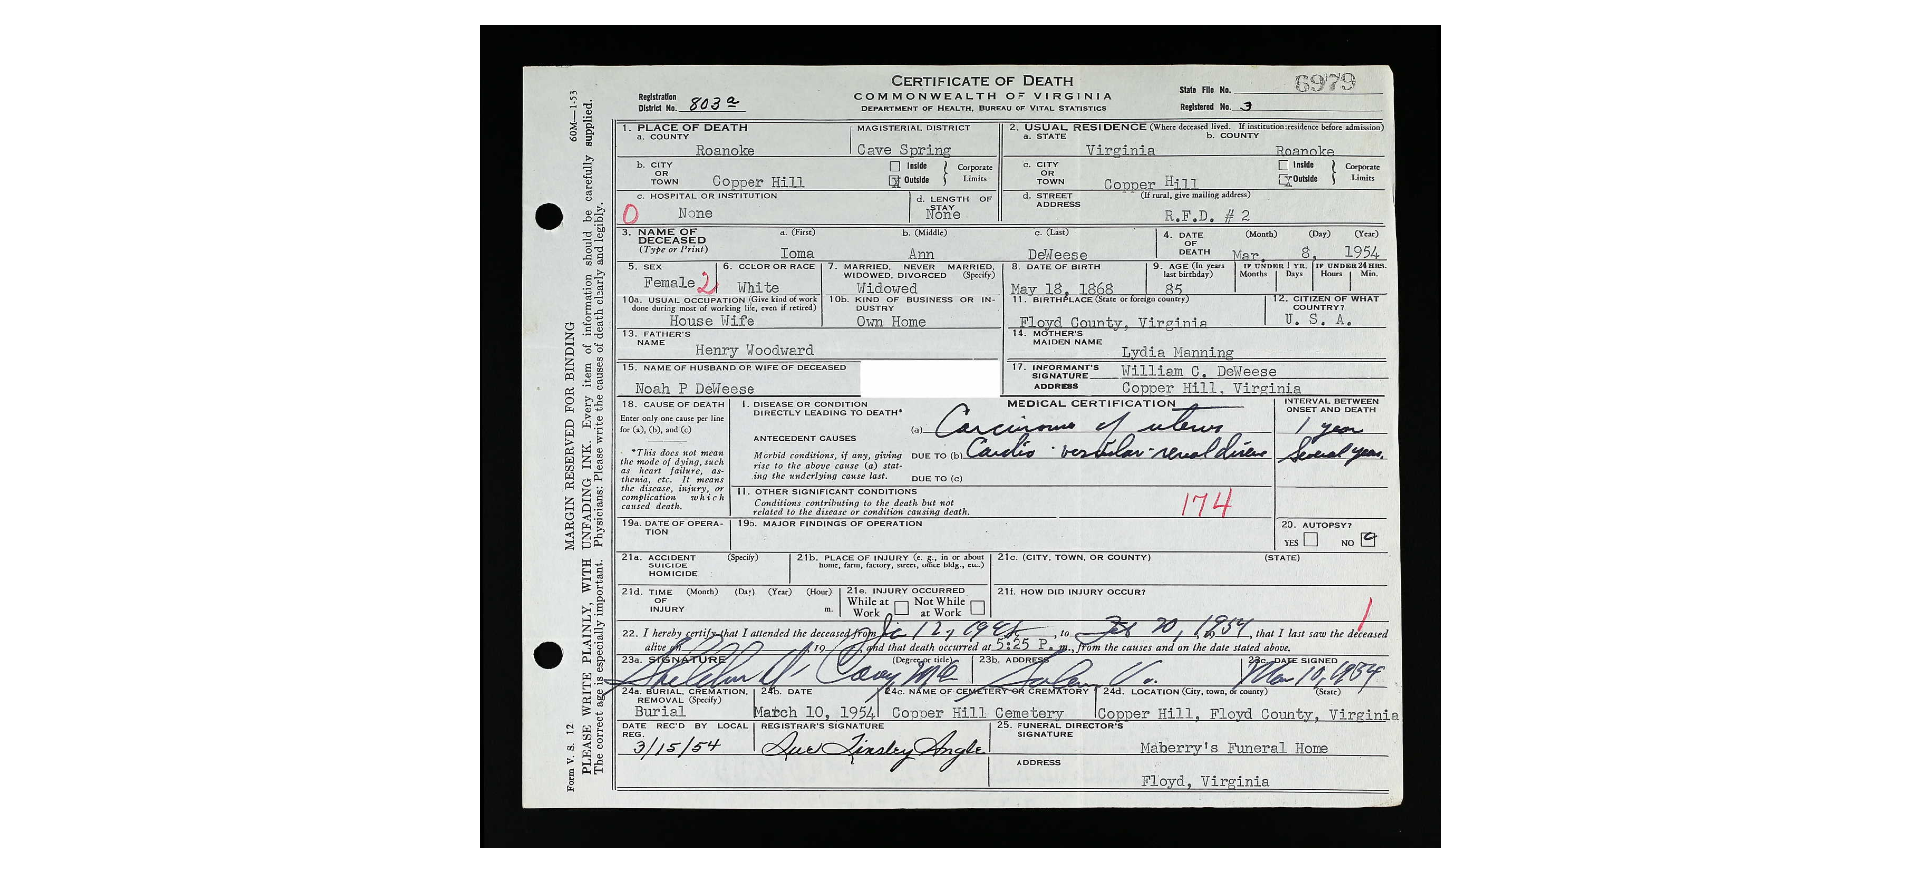 CERTIFICATE OF DEATH
COMMONWEALTH OF VIRGINIA
DEPARTMENT OF HEALTH, BUREAU OF VITAL STATISTICS
Registration District No. 803a
State File No. 6979
Registered No. 3
60M—1-53
MARGIN RESERVED FOR BINDING
PLEASE WRITE PLAINLY, WITH UNFADING INK. Every item of information should be carefully supplied.
The correct age is especially important. Physicians: Please write the causes of death clearly and legibly.
Form V. S. 12
1. PLACE OF DEATH
a. COUNTY Roanoke
MAGISTERIAL DISTRICT Cave Spring
2. USUAL RESIDENCE (Where deceased lived. If institution: residence before admission)
a. STATE Virginia
b. COUNTY Roanoke
b. CITY OR TOWN Copper Hill
Inside Outside Corporate Limits
c. CITY OR TOWN Copper Hill
Inside Outside Corporate Limits
c. HOSPITAL OR INSTITUTION None
0
d. LENGTH OF STAY None
d. STREET ADDRESS (If rural, give mailing address) R.F.D. # 2
3. NAME OF DECEASED (Type or Print)
a. (First) Ioma
b. (Middle) Ann
c. (Last) DeWeese
4. DATE OF DEATH (Month) (Day) (Year) Mar. 8, 1954
5. SEX Female
2
6. COLOR OR RACE White
7. MARRIED, NEVER MARRIED, WIDOWED, DIVORCED (Specify) Widowed
8. DATE OF BIRTH May 18, 1868
9. AGE (In years last birthday) 85
IF UNDER 1 YR. Months Days
IF UNDER 24 HRS. Hours Min.
10a. USUAL OCCUPATION (Give kind of work done during most of working life, even if retired) House Wife
10b. KIND OF BUSINESS OR INDUSTRY Own Home
11. BIRTHPLACE (State or foreign country) Floyd County, Virginia
12. CITIZEN OF WHAT COUNTRY? U. S. A.
13. FATHER'S NAME Henry Woodward
14. MOTHER'S MAIDEN NAME Lydia Manning
15. NAME OF HUSBAND OR WIFE OF DECEASED Noah P DeWeese
17. INFORMANT'S SIGNATURE William C. DeWeese
ADDRESS Copper Hill, Virginia
18. CAUSE OF DEATH
Enter only one cause per line for (a), (b), and (c)
*This does not mean the mode of dying, such as heart failure, asthenia, etc. It means the disease, injury, or complication which caused death.
MEDICAL CERTIFICATION
INTERVAL BETWEEN ONSET AND DEATH
I. DISEASE OR CONDITION DIRECTLY LEADING TO DEATH*
(a) Carcinoma of uterus 1 year
ANTECEDENT CAUSES
Morbid conditions, if any, giving rise to the above cause (a) stating the underlying cause last.
DUE TO (b) Cardio-vascular-renal disease Several years
DUE TO (c)
II. OTHER SIGNIFICANT CONDITIONS
Conditions contributing to the death but not related to the disease or condition causing death.
174
19a. DATE OF OPERATION
19b. MAJOR FINDINGS OF OPERATION
20. AUTOPSY?
YES NO
21a. ACCIDENT SUICIDE HOMICIDE (Specify)
21b. PLACE OF INJURY (e. g., in or about home, farm, factory, street, office bldg., etc.)
21c. (CITY, TOWN, OR COUNTY) (STATE)
21d. TIME OF INJURY (Month) (Day) (Year) (Hour) m.
21e. INJURY OCCURRED While at Work Not While at Work
21f. HOW DID INJURY OCCUR?
22. I hereby certify that I attended the deceased from 12, to Feb 20, 1954, that I last saw the deceased
alive on 19, and that death occurred at 5:25 P. m., from the causes and on the date stated above.
23a. SIGNATURE (Degree or title)
23b. ADDRESS
23c. DATE SIGNED Mar 10, 1954
24a. BURIAL, CREMATION, REMOVAL (Specify) Burial
24b. DATE March 10, 1954
24c. NAME OF CEMETERY OR CREMATORY Copper Hill Cemetery
24d. LOCATION (City, town, or county) (State) Copper Hill, Floyd County, Virginia
DATE REC'D BY LOCAL REG. 3/15/54
REGISTRAR'S SIGNATURE Sue Tinsley Angle
25. FUNERAL DIRECTOR'S SIGNATURE Maberry's Funeral Home
ADDRESS Floyd, Virginia